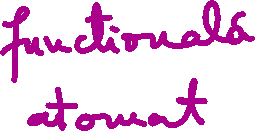 functională
atomat